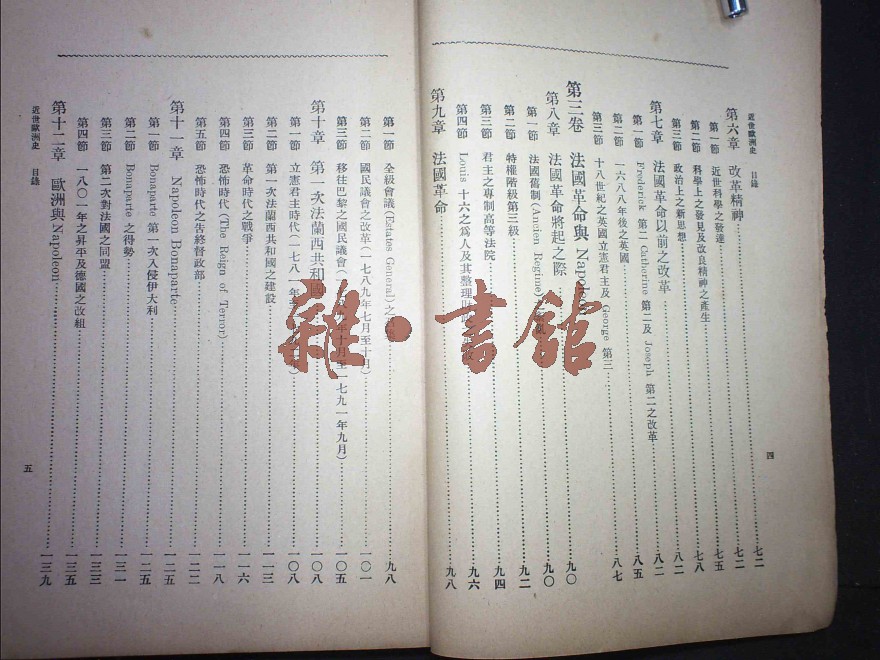 近世歐洲史 目錄
第六章 改革精神 七二
第一節 近世科學之發達 七二
第二節 科學上之發見及改良精神之產生 七五
第三節 政治上之新思想 七八
第七章 法國革命以前之改革 八二
第一節 Frederick 第二 Catherine 第二及 Joseph 第二之改革 八二
第二節 一六八八年後之英國 八五
第三節 十八世紀之英國立憲君主及 George 第三 八七
第三卷 法國革命與 Napoleon 九〇
第八章 法國革命將起之際 九〇
第一節 法國舊制 (Ancien Regime) 九〇
第二節 特權階級第三級 九二
第三節 君主之專制高等法院 九四
第四節 Louis 十六之爲人及其整理財 九六
第九章 法國革命 九八
四
第一節 全級會議 (Estates General) 之 九八
第二節 國民議會之改革 (一七八九年七月至十月) 一〇一
第三節 移往巴黎之國民議會 年十月至一七九一年九月) 一〇五
第十章 第一次法蘭西共和國 一〇八
第一節 立憲君主時代 (一七 一〇八
第二節 第一次法蘭西共和國之建設 一一三
第三節 革命時代之戰爭 一一六
第四節 恐怖時代 (The Reign of Terror) 一一八
第五節 恐怖時代之告終督政部 一二二
第十一章 Napoleon Bonaparte 一二五
第一節 Bonaparte 第一次入侵伊大利 一二五
第二節 Bonaparte 之得勢 一三一
第三節 第二次對法國之同盟 一三三
第四節 一八〇一年之昇平及德國之改組 一三五
第十二章 歐洲與 Napoleon 一三九
近世歐洲史 目錄
五
雜·書館